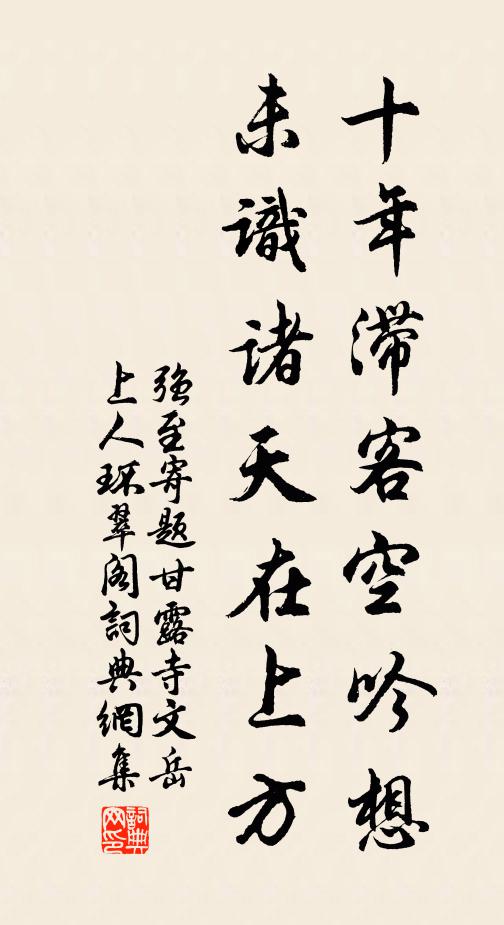 十年滞客空吟想
未識诸天在上方
强至寄题甘露寺文岳
上人环翠阁詞典網集
詞典网印